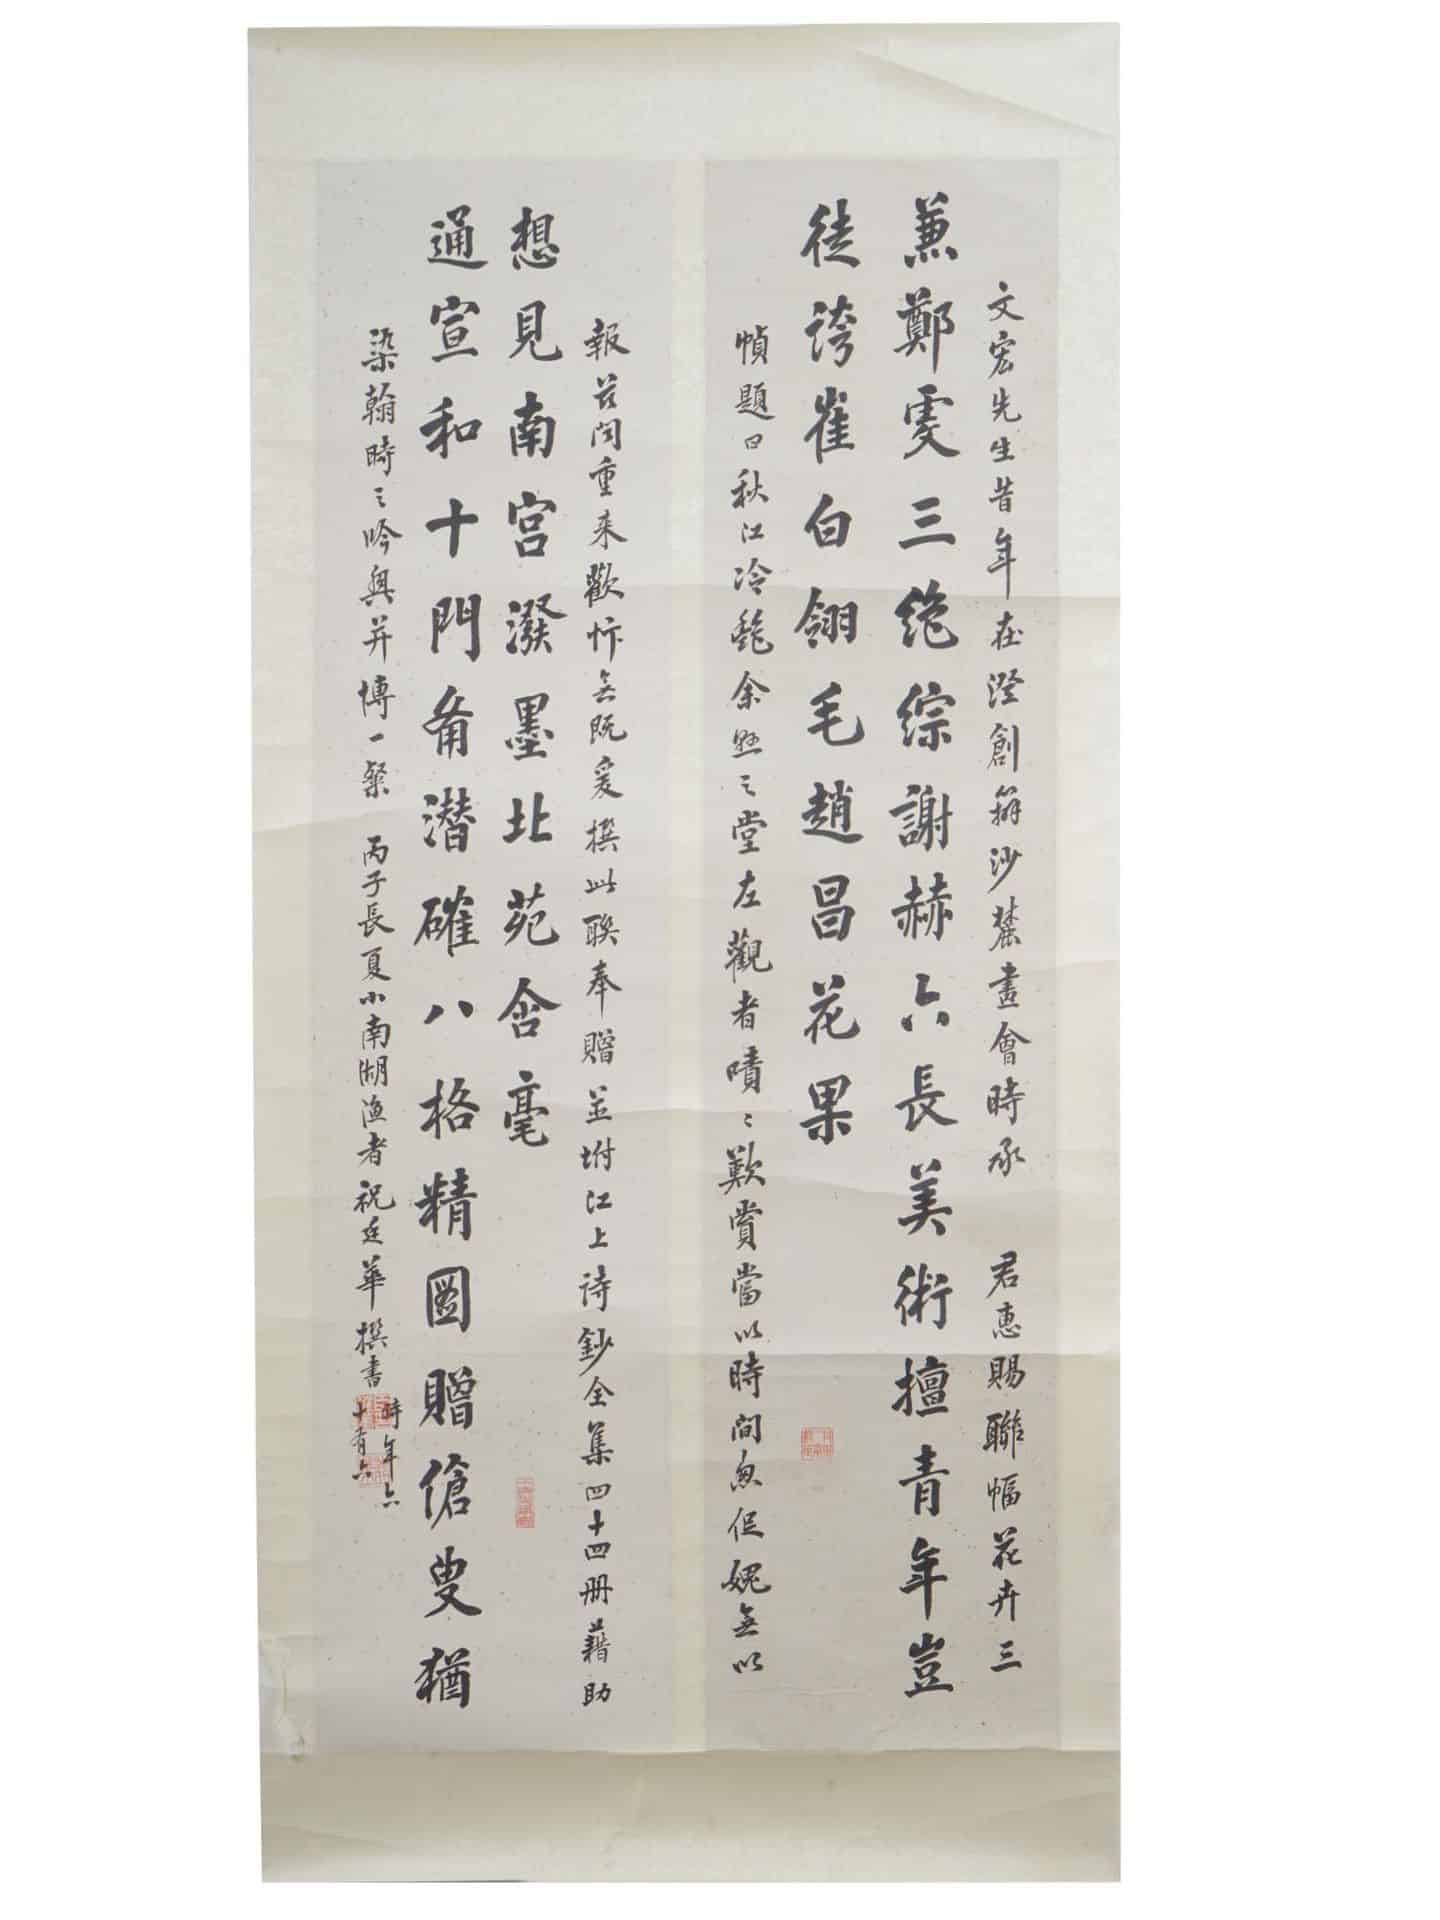 文宏先生昔年在澄創辦沙麓畫會時承 君惠賜聯幅花卉三
兼鄭虔三絶綜謝赫六長美術擅青年豈
徒誇崔白翎毛趙昌花果
幀題曰秋江冷艷余懸之堂左觀者嘖〻歎賞當以時間匆促媿無以
報茲閏重来歡忭無既爰撰此聯奉贈並坿江上诗鈔全集四十四册藉助
想見南宮潑墨北苑含毫
通宣和十門者潛確八格精圖贈傖叟猶
染翰時之吟興并博一粲 丙子長夏小南湖漁者祝廷華撰書 時年六
十有六